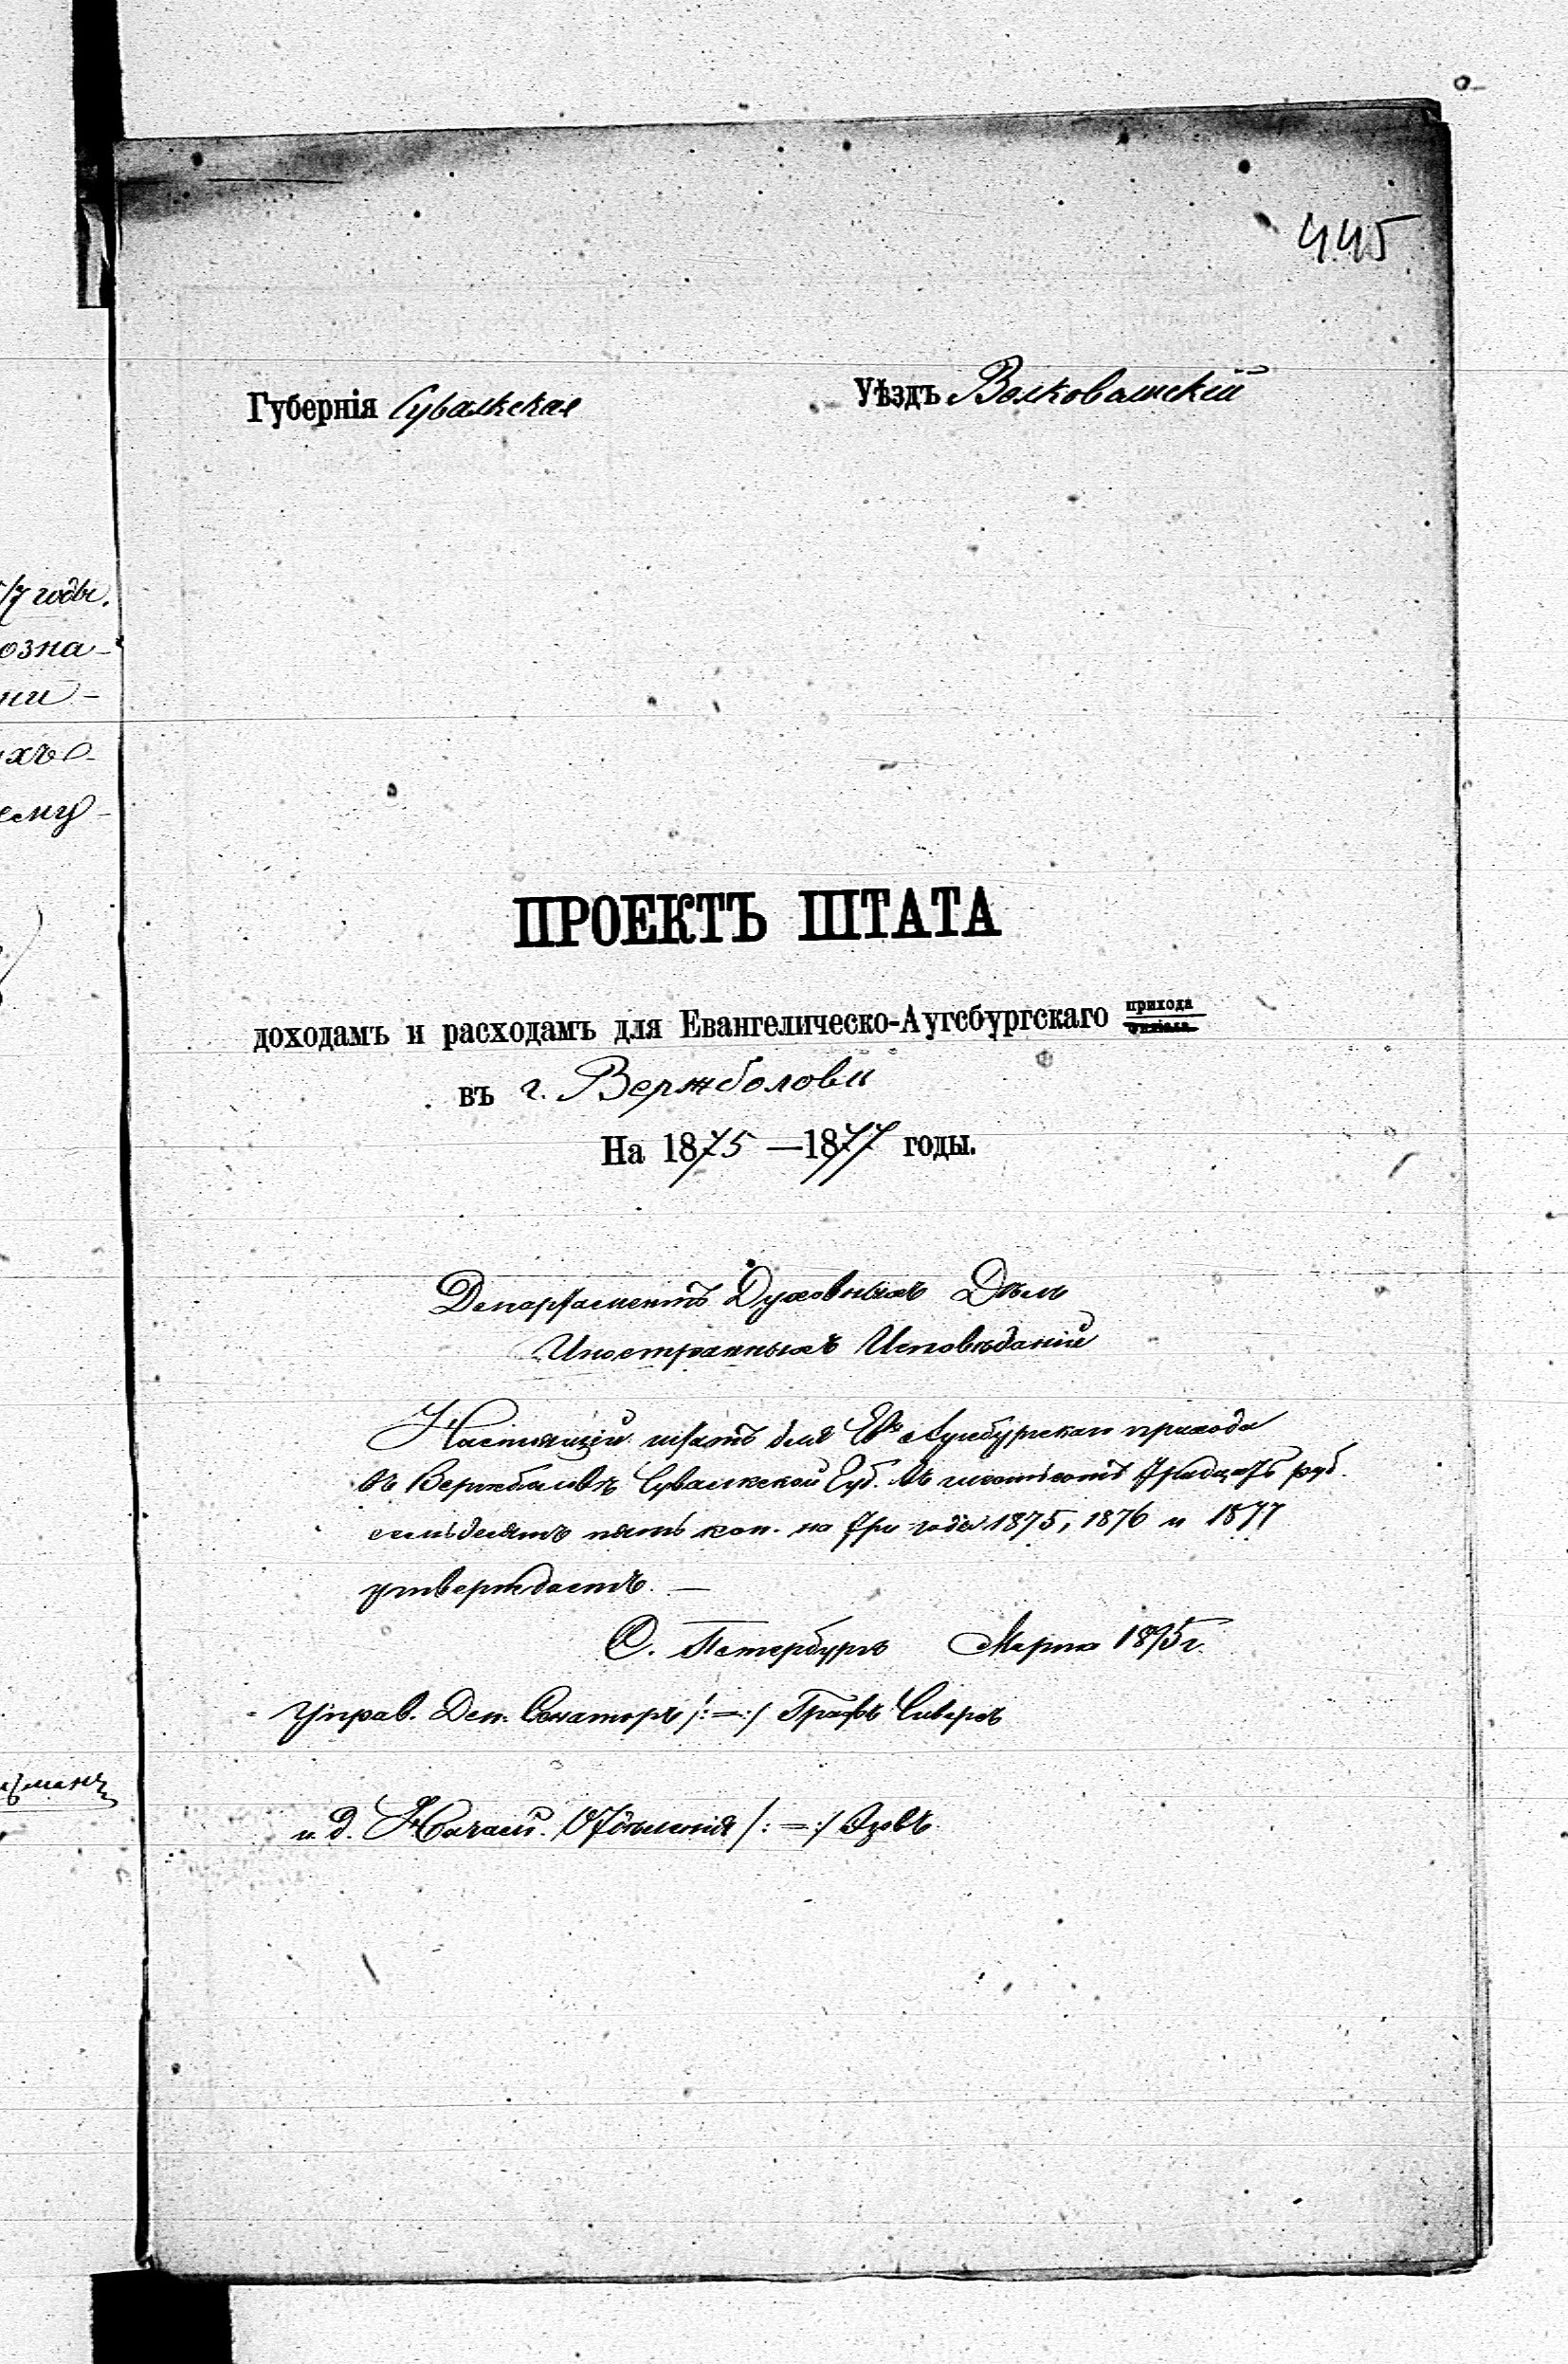 445
Губернія Сувалкская Уѣздъ Волковышскій
/7 годы.
озна-
ни-
ихъ
ему-
ПРОЕКТЪ ШТАТА
доходамъ и расходамъ для Евангелическо-Аугсбургскаго прихода филіала
въ г. Вержболовѣ
На 1875 — 1877 годы.
Департаментъ Духовныхъ Дѣлъ
Иностранныхъ Исповѣданій
Настоящій штатъ для Ев. Аугсбургскаго прихода
въ Вержболовѣ Сувалкской Губ. въ шестьсотъ тридцать руб.
семьдесятъ пять коп. на три года 1875, 1876 и 1877
утверждаетъ. —
С. Петербургъ Марта 1875 г.
Управ. Деп. Сенаторъ /:=:/ Графъ Сиверсъ
и. д. Началь. Отдѣленія /:=:/ Эзовъ.